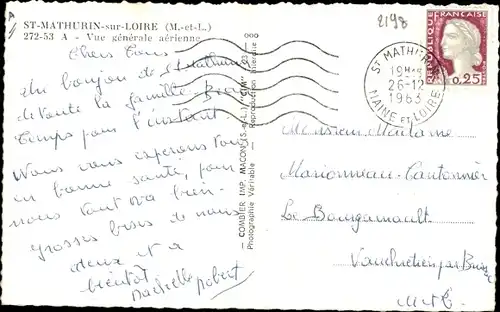 ST-MATHURIN-sur-LOIRE (M.-et-L.)
272-53 A - Vue générale aérienne
Chers Tous
Un bonjour de St Mathurin
de toute la famille. Beau
temps pour l'instant.
Nous vous espérons tous
en bonne santé, pour
nous tout va bien.
grosses bises de nous
deux et a
bientôt
Robert
COMBIER IMP. MACON (S.-et-L.) "CIM"
Photographie Véritable - Reproduction interdite
2198
RÉPUBLIQUE FRANÇAISE
0,25
ST MATHURIN
19H
26-12
1963
MAINE ET LOIRE
Monsieur Madame
Marionneau-Cantonnier
Le Bourgamault
M et L